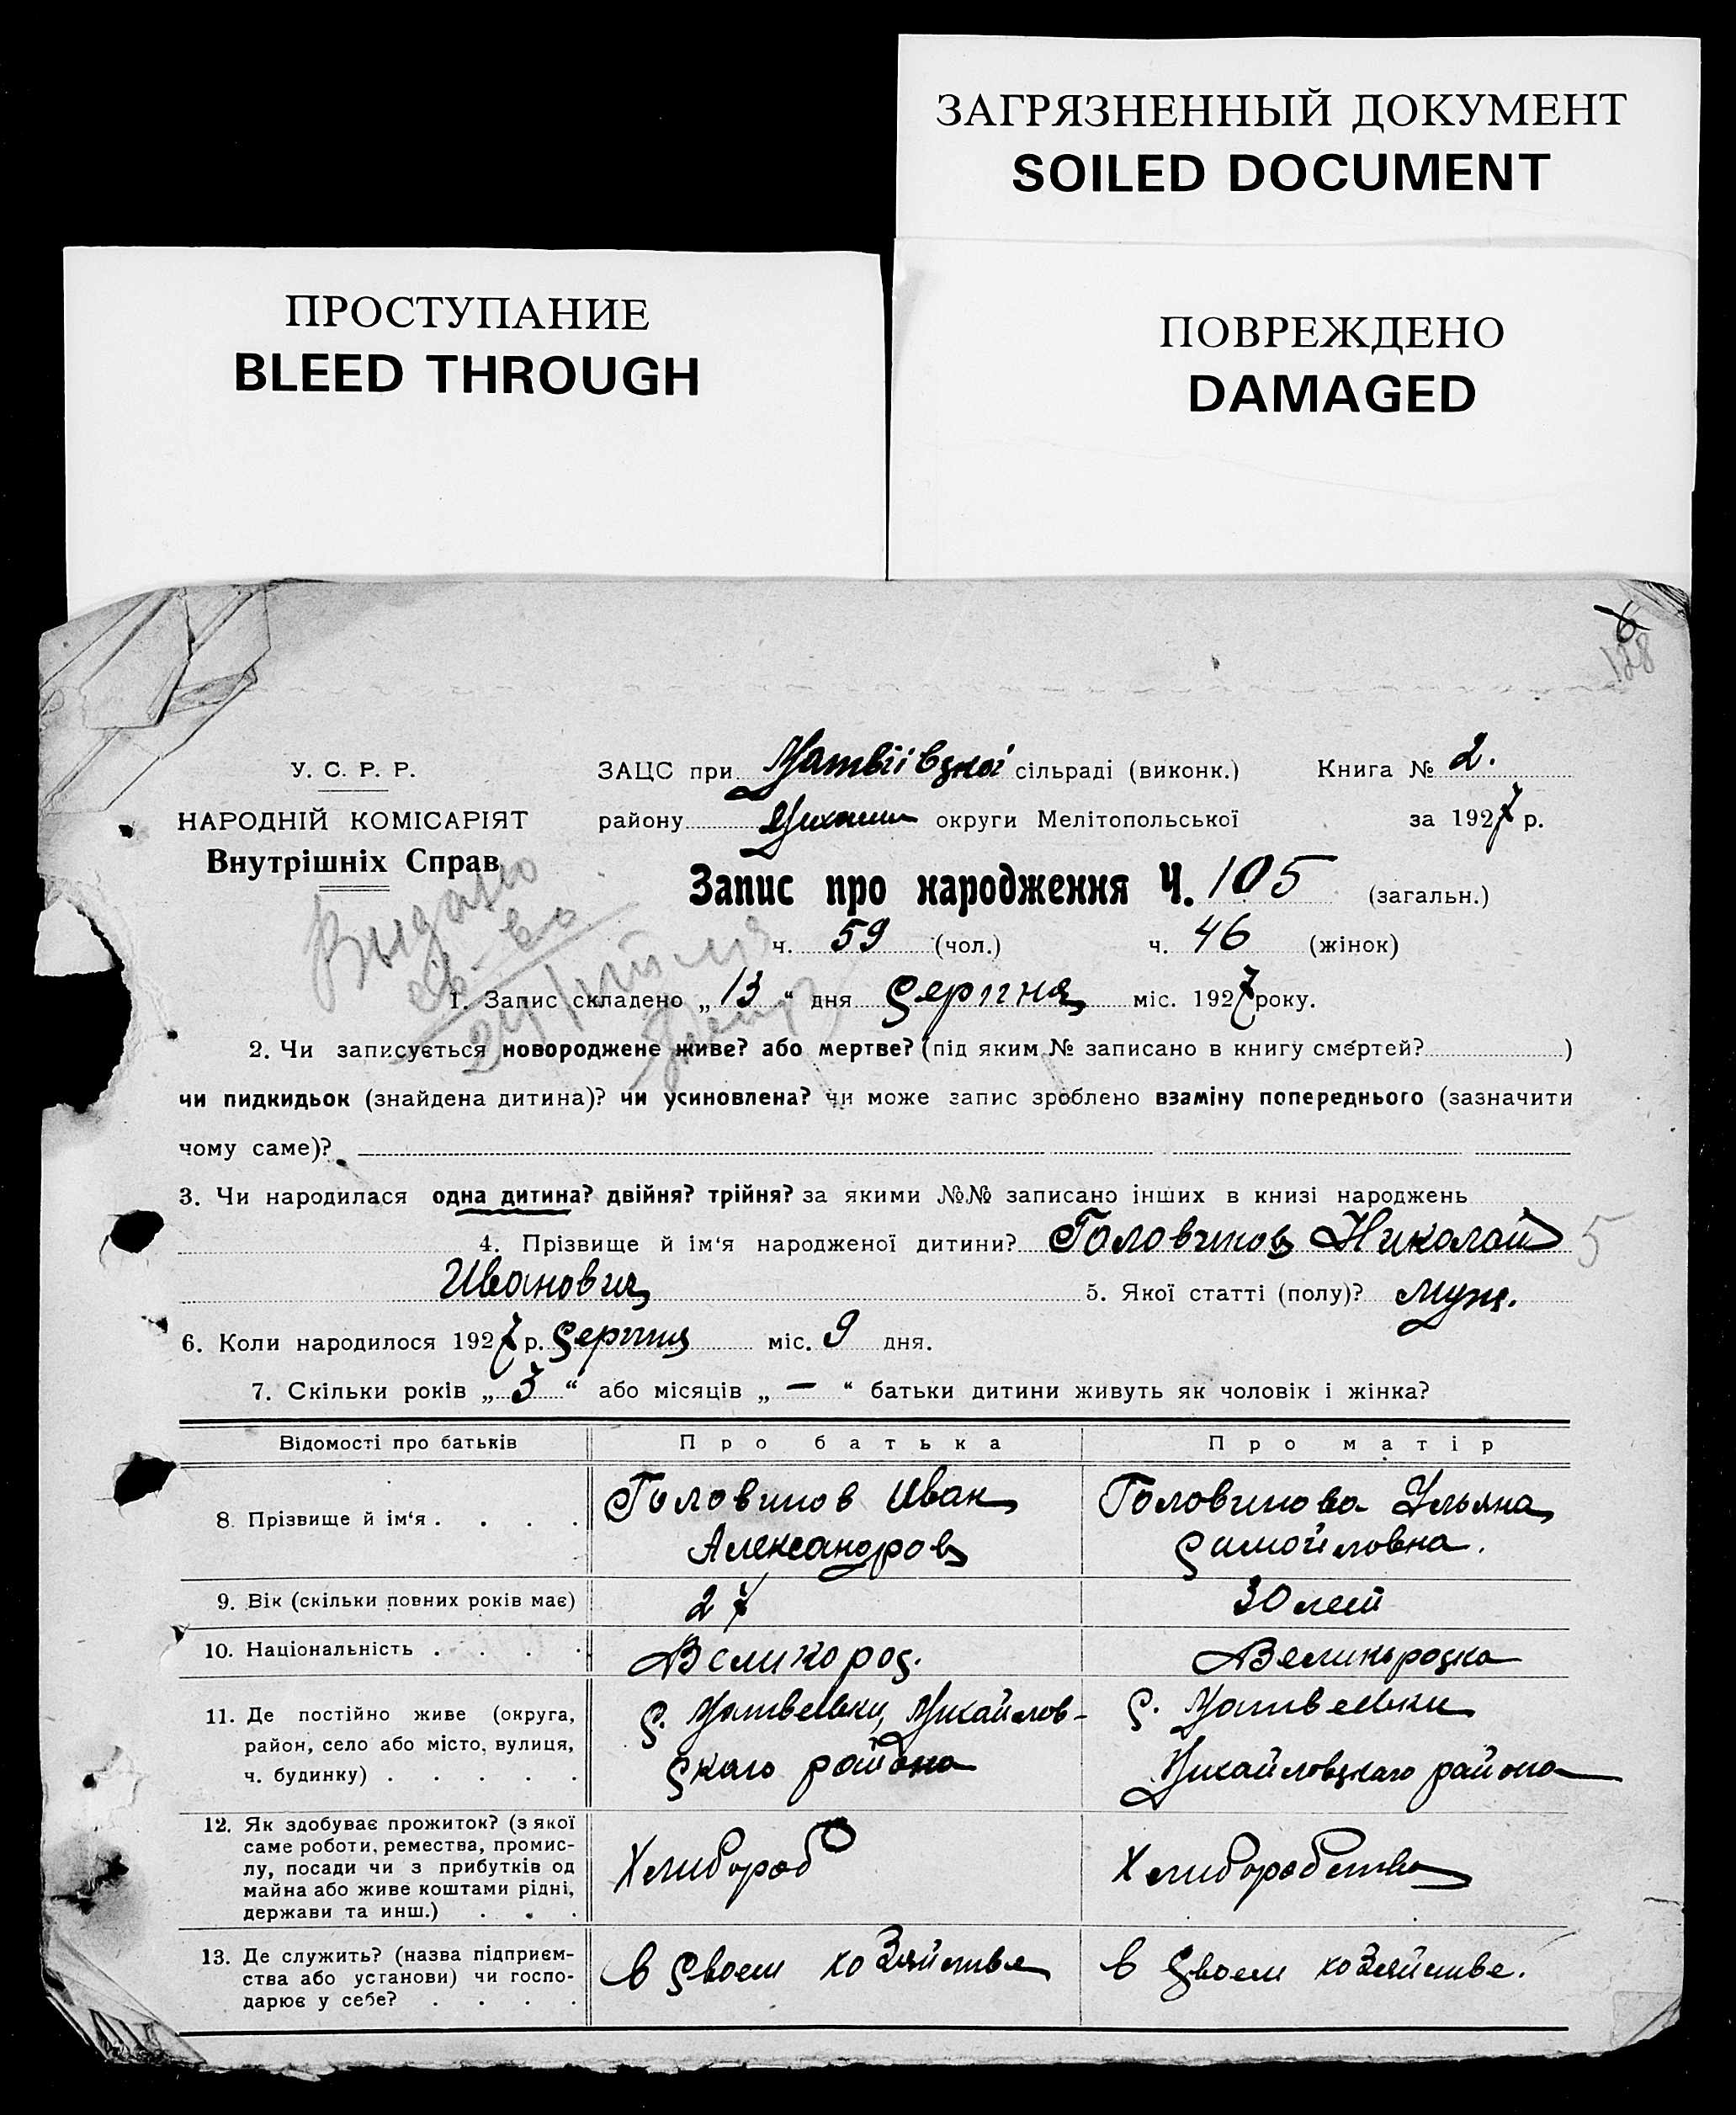 ЗАГРЯЗНЕННЫЙ ДОКУМЕНТ
SOILED DOCUMENT
ПРОСТУПАНИЕ
BLEED THROUGH
ПОВРЕЖДЕНО
DAMAGED
6
128
У. С. Р. Р.
НАРОДНІЙ КОМІСАРІЯТ
Внутрішніх Справ
ЗАЦС при Матвіївській сільраді (виконк.) Книга № 2.
району Михайл округи Мелітопольської за 1927 р.
Запис про народження Ч. 105 (загальн.)
ч. 59 (чол.) ч. 46 (жінок)
Выдано
св-во
1. Запис складено „ 13 “ дня Серпня міс. 1927 року.
2. Чи записується новороджене живе? або мертве? (під яким № записано в книгу смертей? )
чи пидкидьок (знайдена дитина)? чи усиновлена? чи може запис зроблено взаміну попереднього (зазначити
чому саме)?
3. Чи народилася одна дитина? двійня? трійня? за якими №№ записано інших в книзі народжень
4. Прізвище й ім‘я народженої дитини? Головинов Николай 5
Иванович 5. Якої статті (полу)? муж.
6. Коли народилося 1927 р. Серпня міс. 9 дня.
7. Скільки років „ 3 “ або місяців „ — “ батьки дитини живуть як чоловік і жінка?
Відомості про батьків Про батька Про матір
8. Прізвище й ім‘я . . . . Головинов Иван Александров Головинова Ульяна Самойловна.
9. Вік (скільки повних років має) 27 30 лет
10. Національність . . . . Великорос. Великороска
11. Де постійно живе (округа, район, село або місто, вулиця, ч. будинку) . . . . . с. Матвеевки, Михайловскаго района с. Матвеевки Михайловскаго района
12. Як здобуває прожиток? (з якої саме роботи, ремества, промислу, посади чи з прибутків од майна або живе коштами рідні, держави та инш.) . . . Хлибороб Хлиборобство
13. Де служить? (назва підприємства або установи) чи господарює у себе? . . . . в своем хозяйстве в своем хозяйстве.